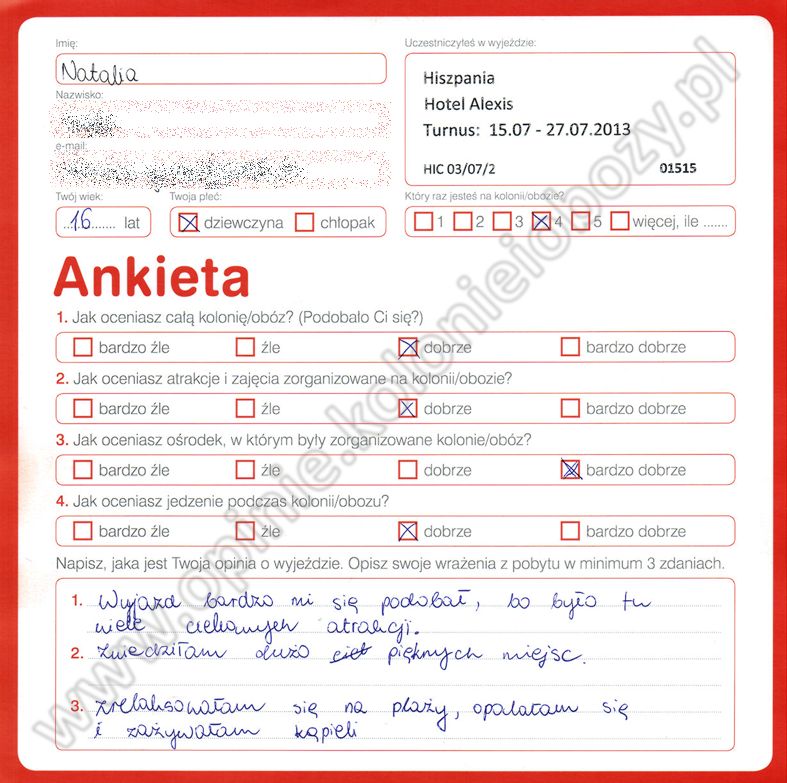 Imię:
Natalia
Uczestniczyłeś w wyjeździe:
Hiszpania
Hotel Alexis
Turnus: 15.07 - 27.07.2013
HIC 03/07/2
01515
Nazwisko:
e-mail:
Twój wiek:
16 lat
Twoja płeć:
dziewczyna chłopak
Który raz jesteś na kolonii/obozie?
1 2 3 4 5 więcej, ile .......
Ankieta
1. Jak oceniasz całą kolonię/obóz? (Podobało Ci się?)
bardzo źle źle dobrze bardzo dobrze
2. Jak oceniasz atrakcje i zajęcia zorganizowane na kolonii/obozie?
bardzo źle źle dobrze bardzo dobrze
3. Jak oceniasz ośrodek, w którym były zorganizowane kolonie/obóz?
bardzo źle źle dobrze bardzo dobrze
4. Jak oceniasz jedzenie podczas kolonii/obozu?
bardzo źle źle dobrze bardzo dobrze
Napisz, jaka jest Twoja opinia o wyjeździe. Opisz swoje wrażenia z pobytu w minimum 3 zdaniach.
1. Wyjazd bardzo mi się podobał, bo było tu
wiele ciekawych atrakcji.
2. Zwiedziłam dużo pięknych miejsc.
3. Zrelaksowałam się na plaży, opalałam się
i zażywałam kąpieli
www.opinie.kolonieiobozy.pl